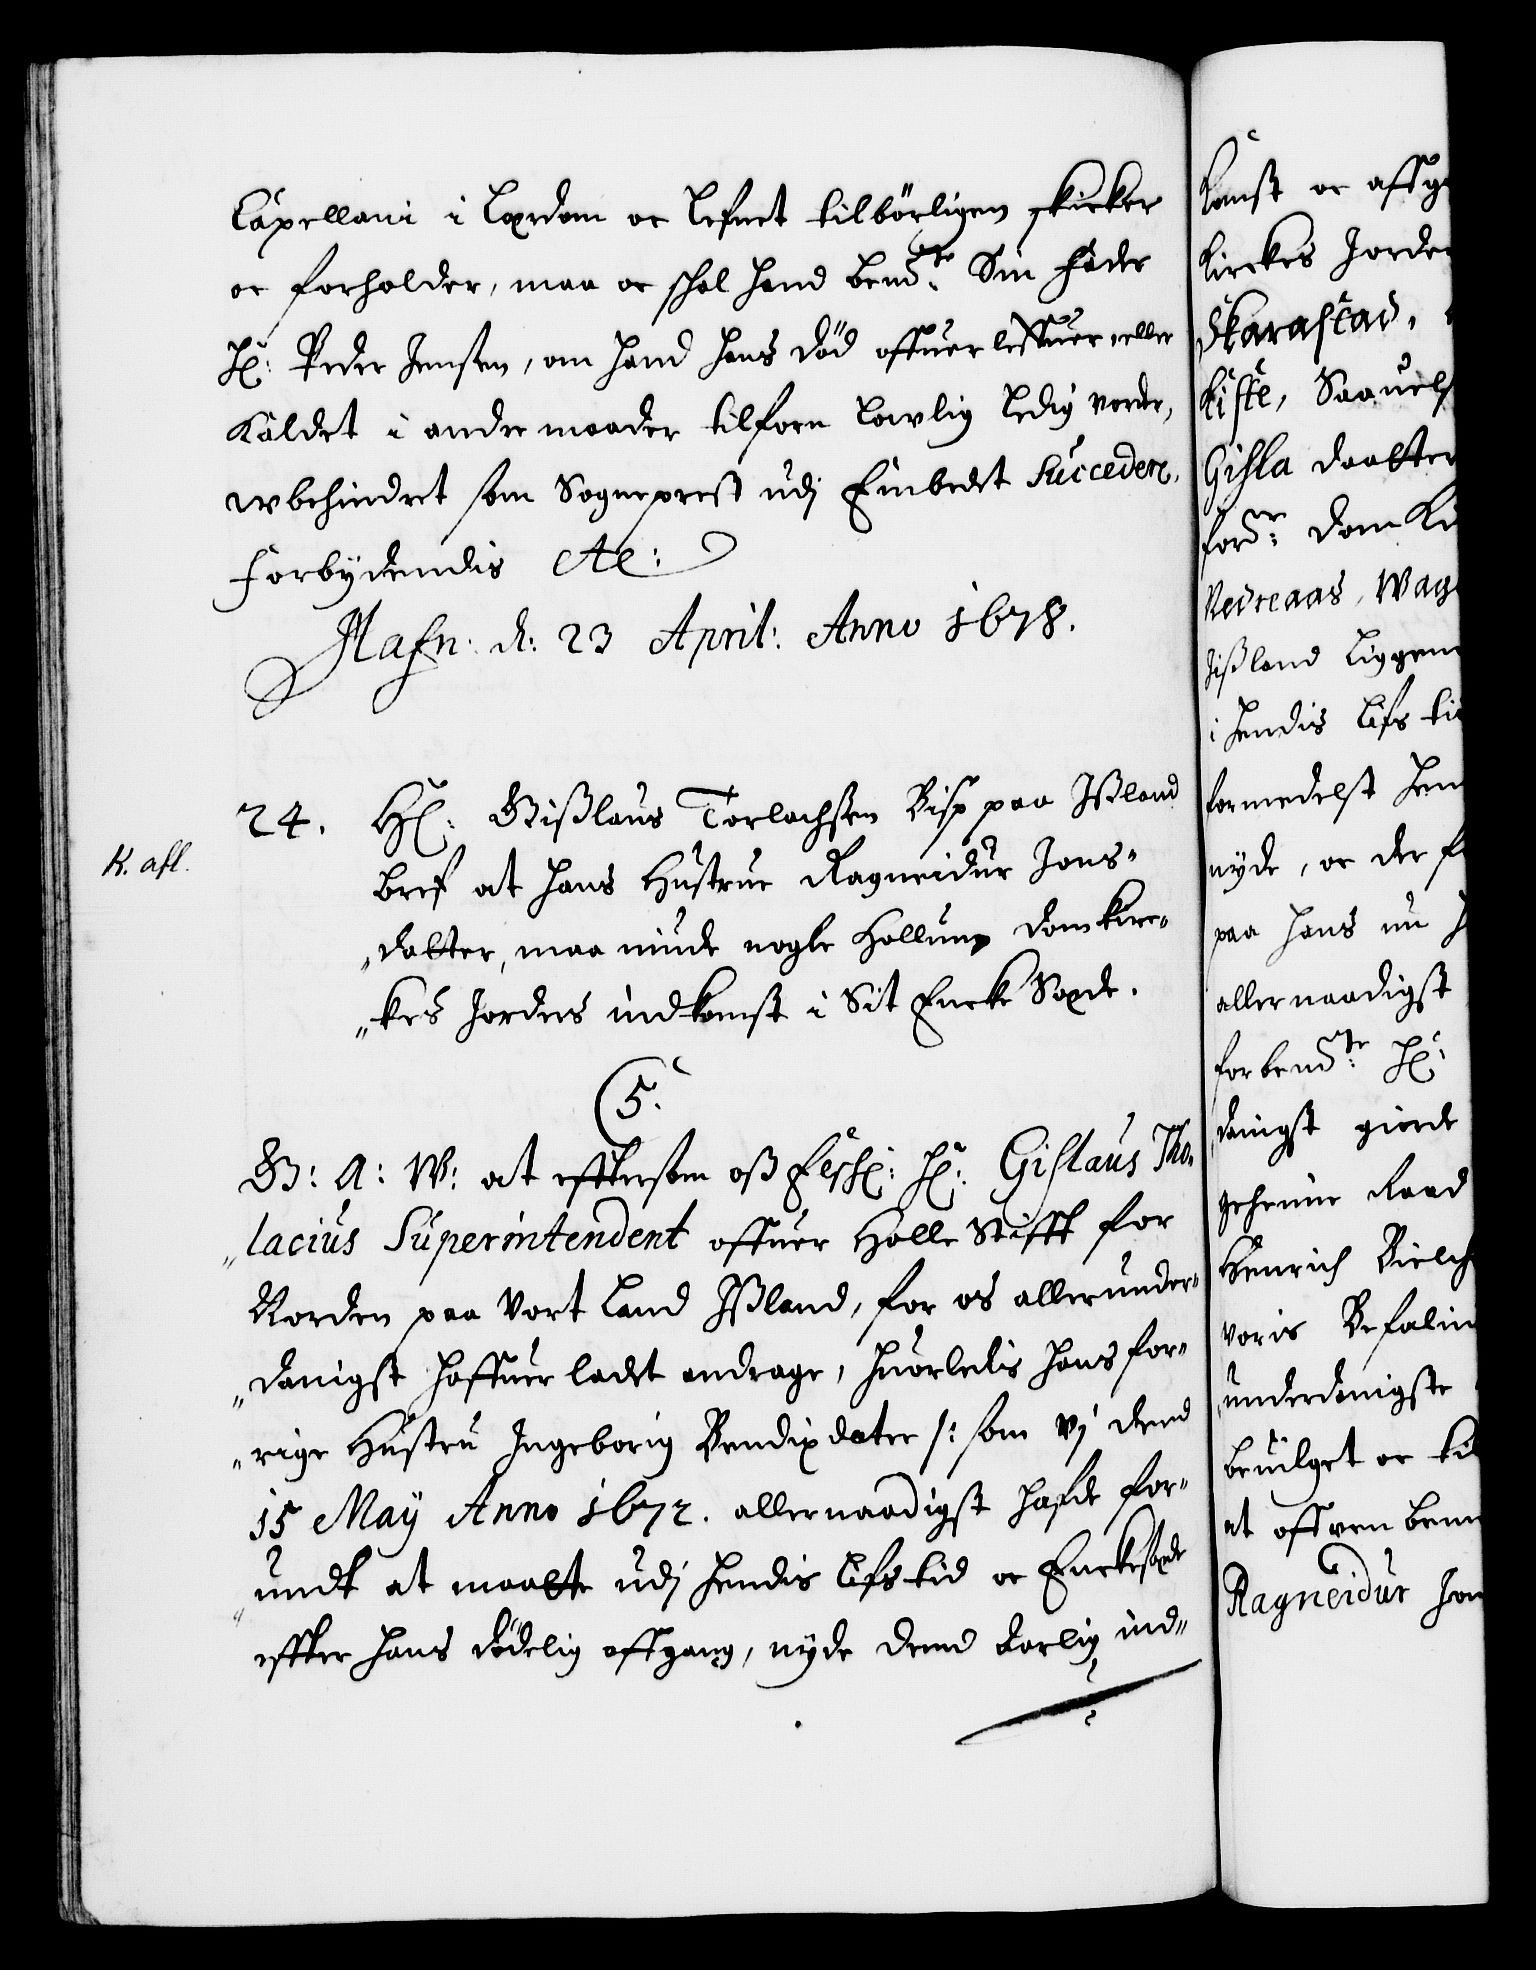 Capellani i Lærdom oc Lefnet tilbörligen skicker
oc forholder, maa oc skal hand bemte: Sin Fader
Hr: Peder Jensen, om hand hans död offuerleffuer eller
Kaldet i andre maader tilforn Lowlig Ledig vorde,
wbehindret som Sogneprest udj Embedet Succedere,
Forbydendis etc:
Hafn: d: 23 April: Anno 1678.
24. Hr: Gißlaus Torlachsen Bisp paa Ißland
K. afl.
bref at hans Hustrue Ragneidur Jons-
"datter, maa niude nogle Hollumb Domkirc-
"kes Jorders indkomst i Sit Encke Sæde.
C5.
G: A: W: at effttersom oß Elskl: Hr: Gislaus Tho-
"lacius Superintendent offuer Holle Stifft for
Norden paa Vort Land Ißland, for os allerunder-
"danigst haffuer ladet andrage, huorledis hans for-
"rige Hustru Ingeborig Bendixdater /: som Vj dend
15 May Anno 1672. allernaadigst hafde for-
"undt at maatte udj hendis Lifs tid oc Enckesæde
effter hans dödelig affgang, nyde dend Aarlig ind-
Komst oc affg
Kirckes Jorde
Skarastad,
Kiste, Saauels
Gisla daatter
forne: Dom Ki
Reireaas, Wag
Jißland Liggen
i hendis Lifs ti
formedelst hen
nyde, oc der f
paa hans nu h
allernaadigst
forbemte: Hr:
danigst giorde
geheime Raad
Henrich Bielch
voris Befalin
underdanigste
beuilget oc til
at offuenbem
Ragneidur Jon